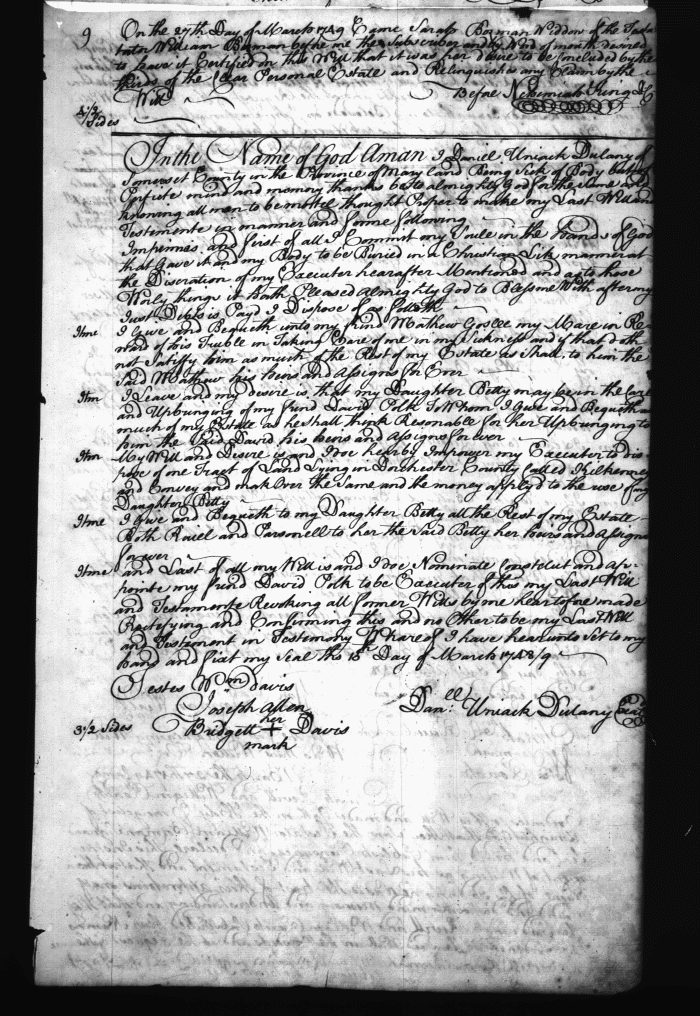 9 On the 27th Day of March 1749 Came Sarah Boman Widdow of the Testa
trator William Boman before me the Subscriber and by Word of mouth desired
to leave it Certified on this Will that it was her desire to be Concluded by the
thirds of the Clear Personal Estate and Relinquishes any Claim by the
Will Before Nehemiah King
4/3 Sides
In the Name of God Aman I Daniel Uniack Dulany of
Somerset County in the Province of Mary land Being Sick of Body but of
Perficte mind and memory thanks be to almighty God for the Same and
knowing all men to be mortel thought Proper to make my Last Will and
Testemente in manner and forme following
Impemis and first of all I Commit my Soule in the Hands of God
that Gave it and my Body to be Buried in a Christian Like manner at
the Discration of my Executer hearafter Mentioned and as to those
Worly things it hath Pleased Almighty God to Blesse me With after my
Just Debts is Payd I Dispose of as foll
Itme I Give and Bequeth unto my frind Mathew Goslee my Mare in Re-
ward of his Truble in Taking Care of me in my Sickness and if that doth
not Satisfy him as much of the Rest of my Estate as Shall to him the
Said Mathew his heirs and Assigns for Ever
Itm I Leave and my desire is that my Daughter Betty may be in the Care
and Upbringing of my frind David Polk To Whom I Give and Bequeth as
much of my Estate as he Shall think Resonable for her Upbringing to
him the Said David his heirs and Assigns for ever
Itm My Will and Desire is and I doe hearby Impower my Executor to dis-
pose of one Tract of Land Lying in Dorchester County Called Kilkenney
and Convey and mak Over the Same and the money applyd to the use of my
Daughter Betty
Itme I Give and Bequeth to my Daughter Betty all the Rest of my Estate
Both Raeel and Parsonell to her the Said Betty her heirs and Assigns
for ever
Itme and Last of all my Will is and I doe Nominate Constitut and Ap-
pointe my frind David Polk to be Executer of this my Last Will
and Testamente Revoking all former Wills by me heartofore made
Rectefying and Confirming this and no Other to be my Last Will
and Testement in Testimony Whareof I have hearunto Set to my
hand and fixt my Seal this 15th Day of March 1748/9
Testes Wm Davis
Joseph Allen Danll: Uniack Dulany Seal
her
3 1/2 Sides Bridgett + Davis
mark